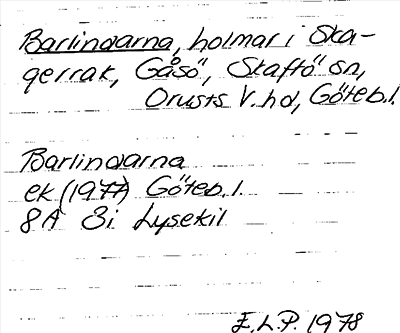 Barlindarna, holmar i Ska-
gerrak, Gåsö, Skaftö sn,
Orusts V. hd, Göteb. l.
Barlindarna
ek (1977) Göteb. l.
8A 8i Lysekil
E.L.P. 1978